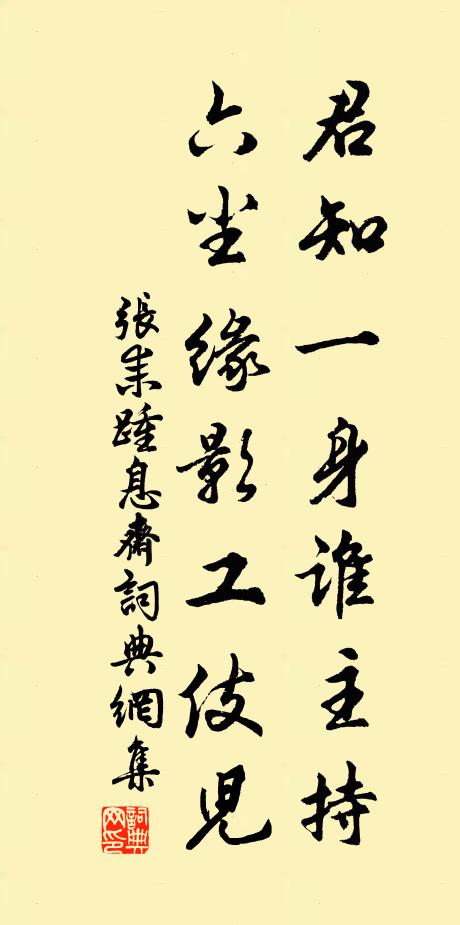 君知一身誰主持
六尘緣影工伎児
張耒踵息齋詞典網集
詞典网印